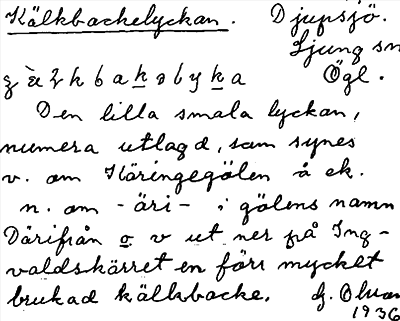 Kälkbackelyckan. Djupsjö.
Ljung sn
Ögl.
Den lilla smala lyckan,
numera utlagd, som synes
v. om Käringegölen å ek.
n. om -äri- i gölens namn
Därifrån o v ut ner på Ing-
valdskärret en förr mycket
brukad kälkbacke. G.
1936